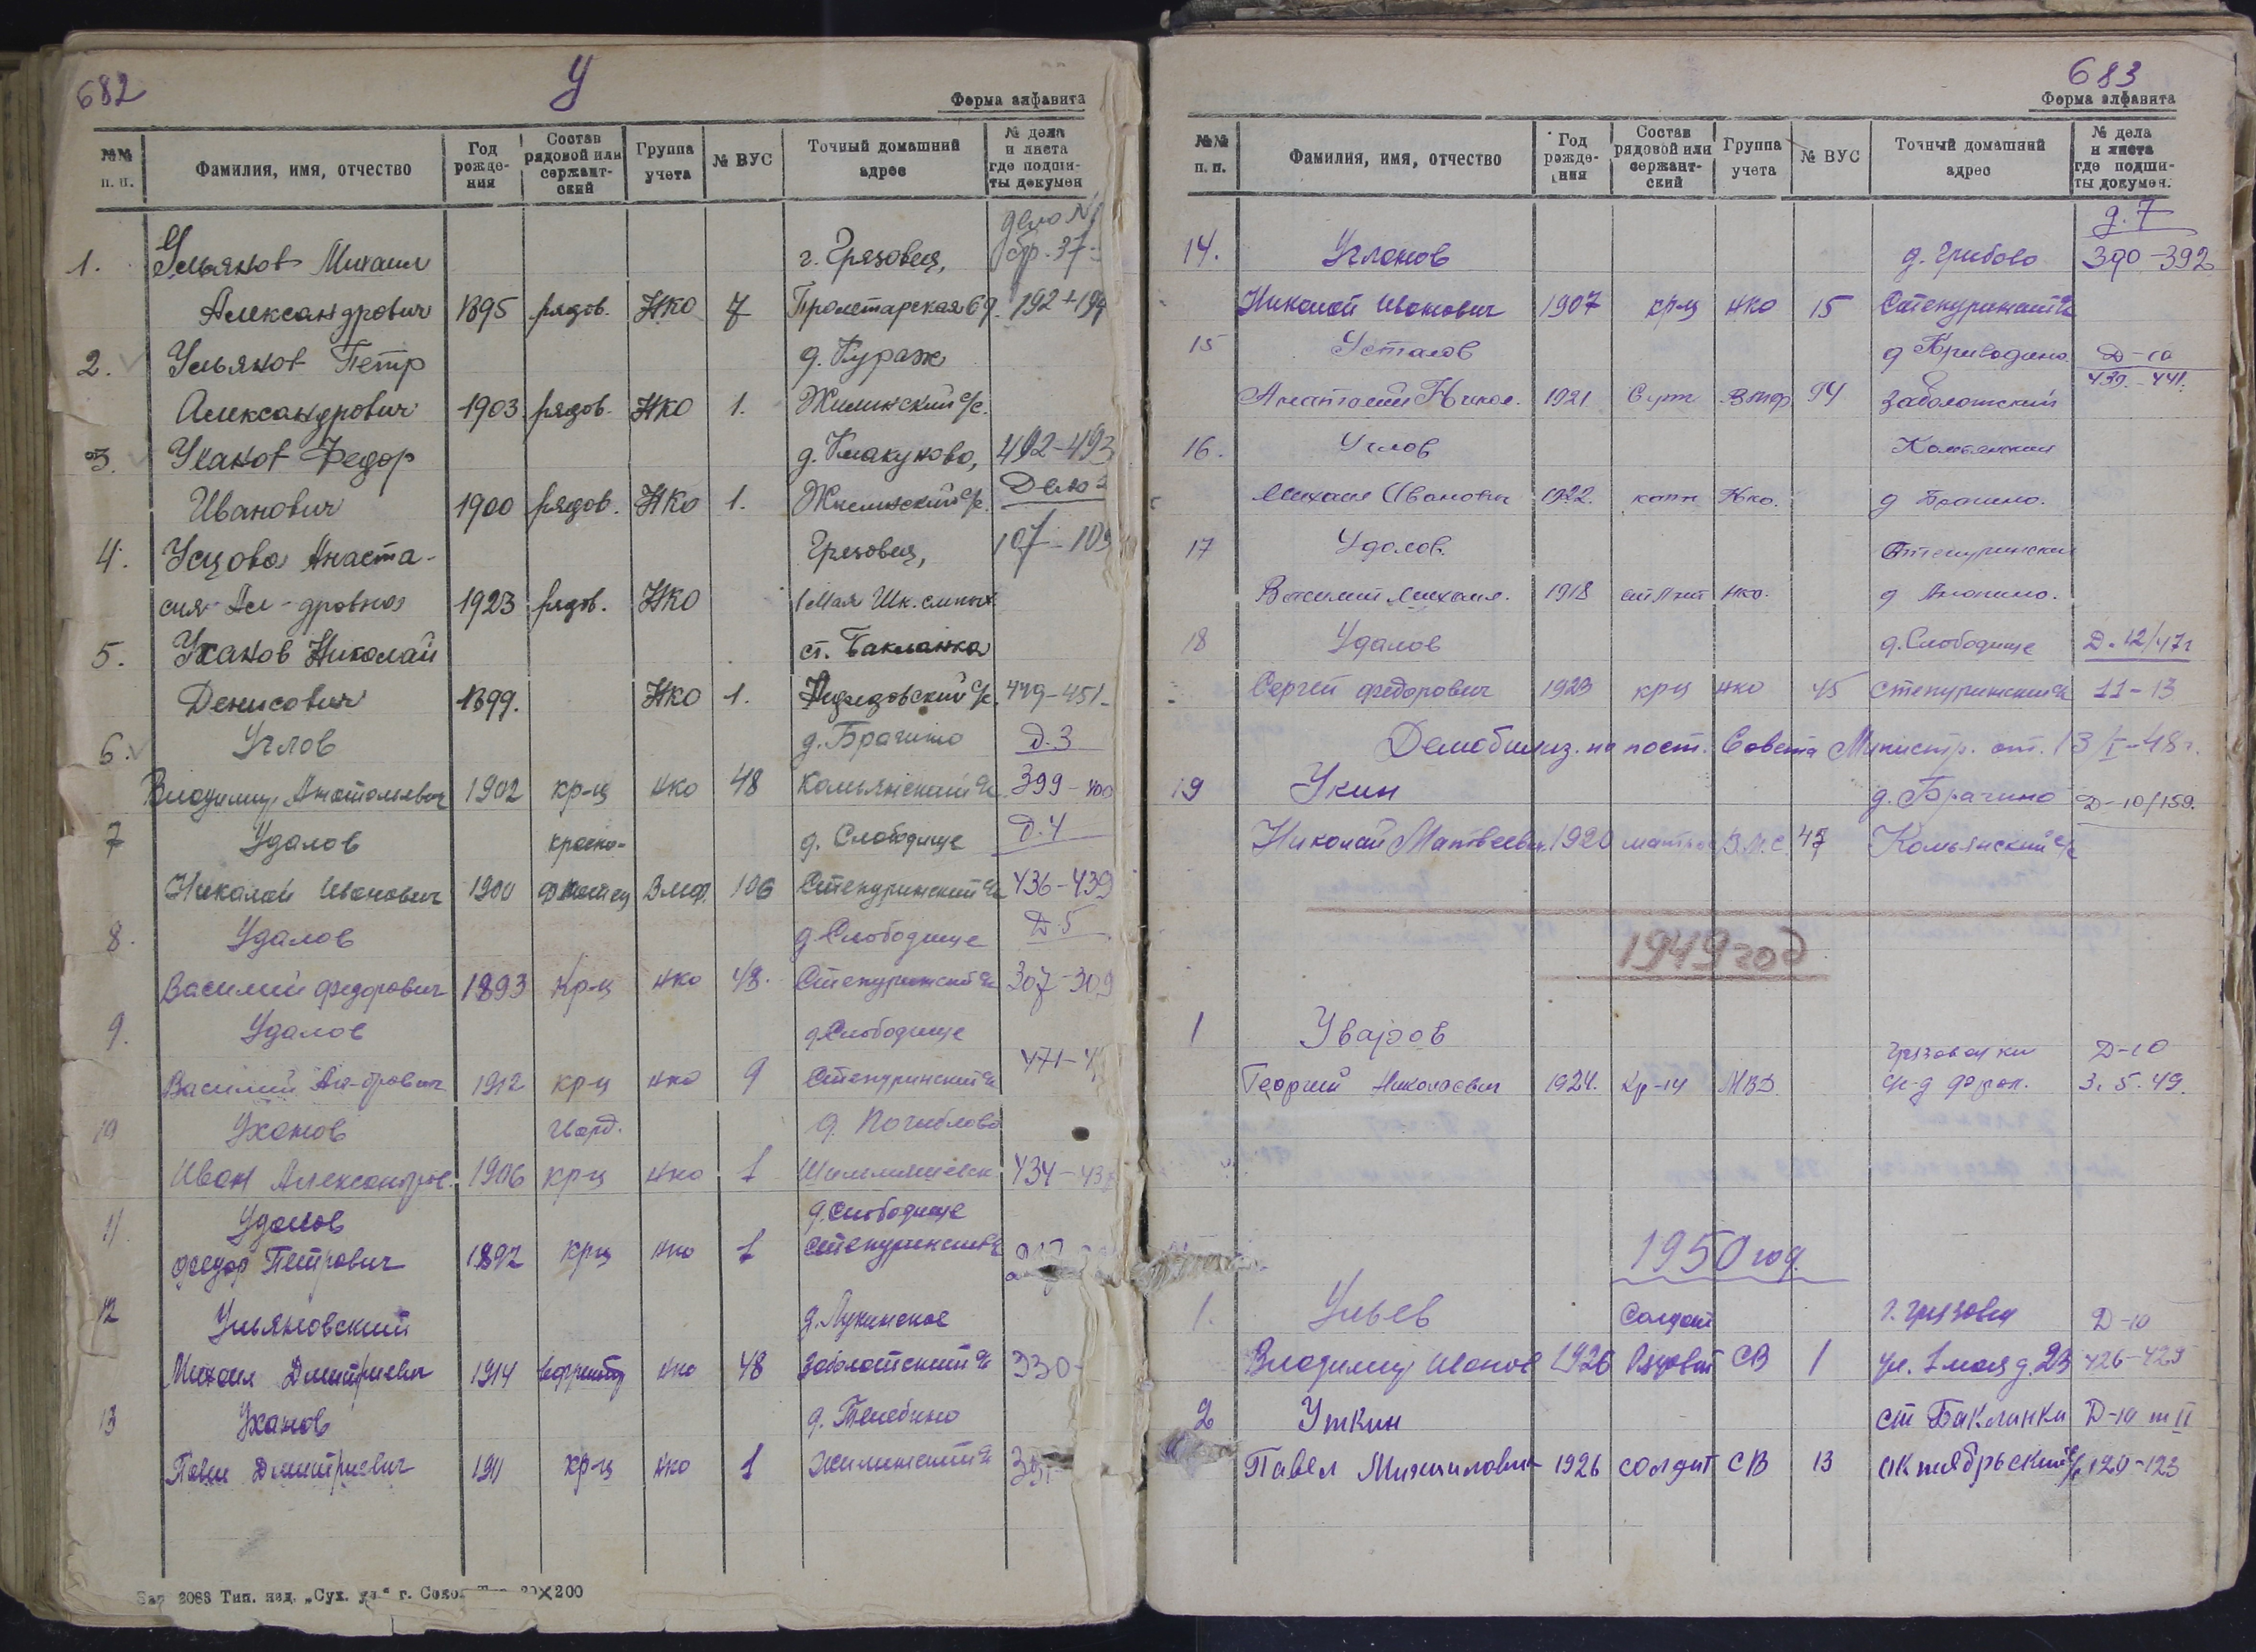 682
У
Форма алфавита
№№ п. п. Фамилия, имя, отчество Год рождения Состав рядовой или сержантский Группа учета № ВУС Точный домашний адрес № дела и листа где подшиты докумен
дело №
1. Ульянов Михаил г. Грязовец, стр. 37-
Александрович 1895 рядов. НКО 7 Пролетарская 69. 192+194
2. Ульянов Петр д. Кураж
Александрович 1903 рядов. НКО 1. Жилинский с/с.
3. Уханов Федор 492-493
Иванович 1900 рядов. НКО 1. Жилинский с/с. Дело
4. Усцова Анаста- Грязовец, 107-109
сия Ал-дровна 1923 рядов. НКО 1 Мая Шк. слепых
5. Уханов Николай ст. Бакланка
Денисович 1899. НКО 1. 449-451-
6. Углов д. Брагино д. 3
Владимир Анатольевич 1902 кр-ц нко 48 Комьянский с/с 399-400
7 Удалов красно- д. Слободище д. 4
Николай Иванович 1900 флотец Вмф. 106 Степуринский с/с 436-439
8. Удалов д. Слободище Д 5
Василий Федорович 1893 Кр-ц нко 48. Степуринский с/с 307-309
9. Удалов д. Слободище
Василий Ал-дрович 1912 кр-ц нко 9 Степуринский с/с 471-4
10 Уханов гвард. д. Погиблово
Иван Александров. 1906 кр-ц нко 1 434-43
11. Удалов д. Слободище
Федор Петрович 1892 крц нко 1 Степуринский с/с
12 Ульяновский д. Лукинское
Михаил Дмитриевич 1914 нко 48 Заболотский с/с 330-
13 Уханов д. Телебино
Павел Дмитриевич 1911 кр-ц нко 1 Жилинский с/с
2083 Тип. изд. „Сух. " г. Сокол 200
683
Форма алфавита
№№ п. п. Фамилия, имя, отчество Год рождения Состав рядовой или сержантский Группа учета № ВУС Точный домашний адрес № дела и листа где подшиты докумен.
д. 7
14. Угланов д. Грибово 390-392
Николай Иванович 1907 кр-ц нко 15 Степуринский с/с
15 Усталов д Криводино Д-10
Анатолий Никол. 1921 Вмф 94 Заболотский 439-441.
16. Углов Комьянский
Михаил Иванович 1922. капи Нко. д Брагино.
17 Удалов. Степуринский
Василий Михаил. 1918 нко. д Анопино.
18 Удалов д. Слободище Д. 12/47г
Сергей Федорович 1923 кр-ц нко 45 Степуринский с/с 11-13
Демобилиз. по пост. Совета Министр. от. 13/I-48г.
19 Укин д. Брагино Д-10/159.
Николай Матвеевич. 1920 матрос В.М.С. 47 Комьянский с/с
1949 год
1 Уваров Грязовецкий Д-10
Георгий Николаевич 1924. Кр-ц МВД 3. 5. 49.
1950 год.
1. Ульев Солдат г. Грязовец Д-10
Владимир Иванов 1926 Рядовой СВ 1 ул. 1 мая д. 23 426-429
2 Уткин ст Бакланка Д-10 т II
Павел Михайлович 1926 солдат СВ 13 Октябрьский с/с 120-123